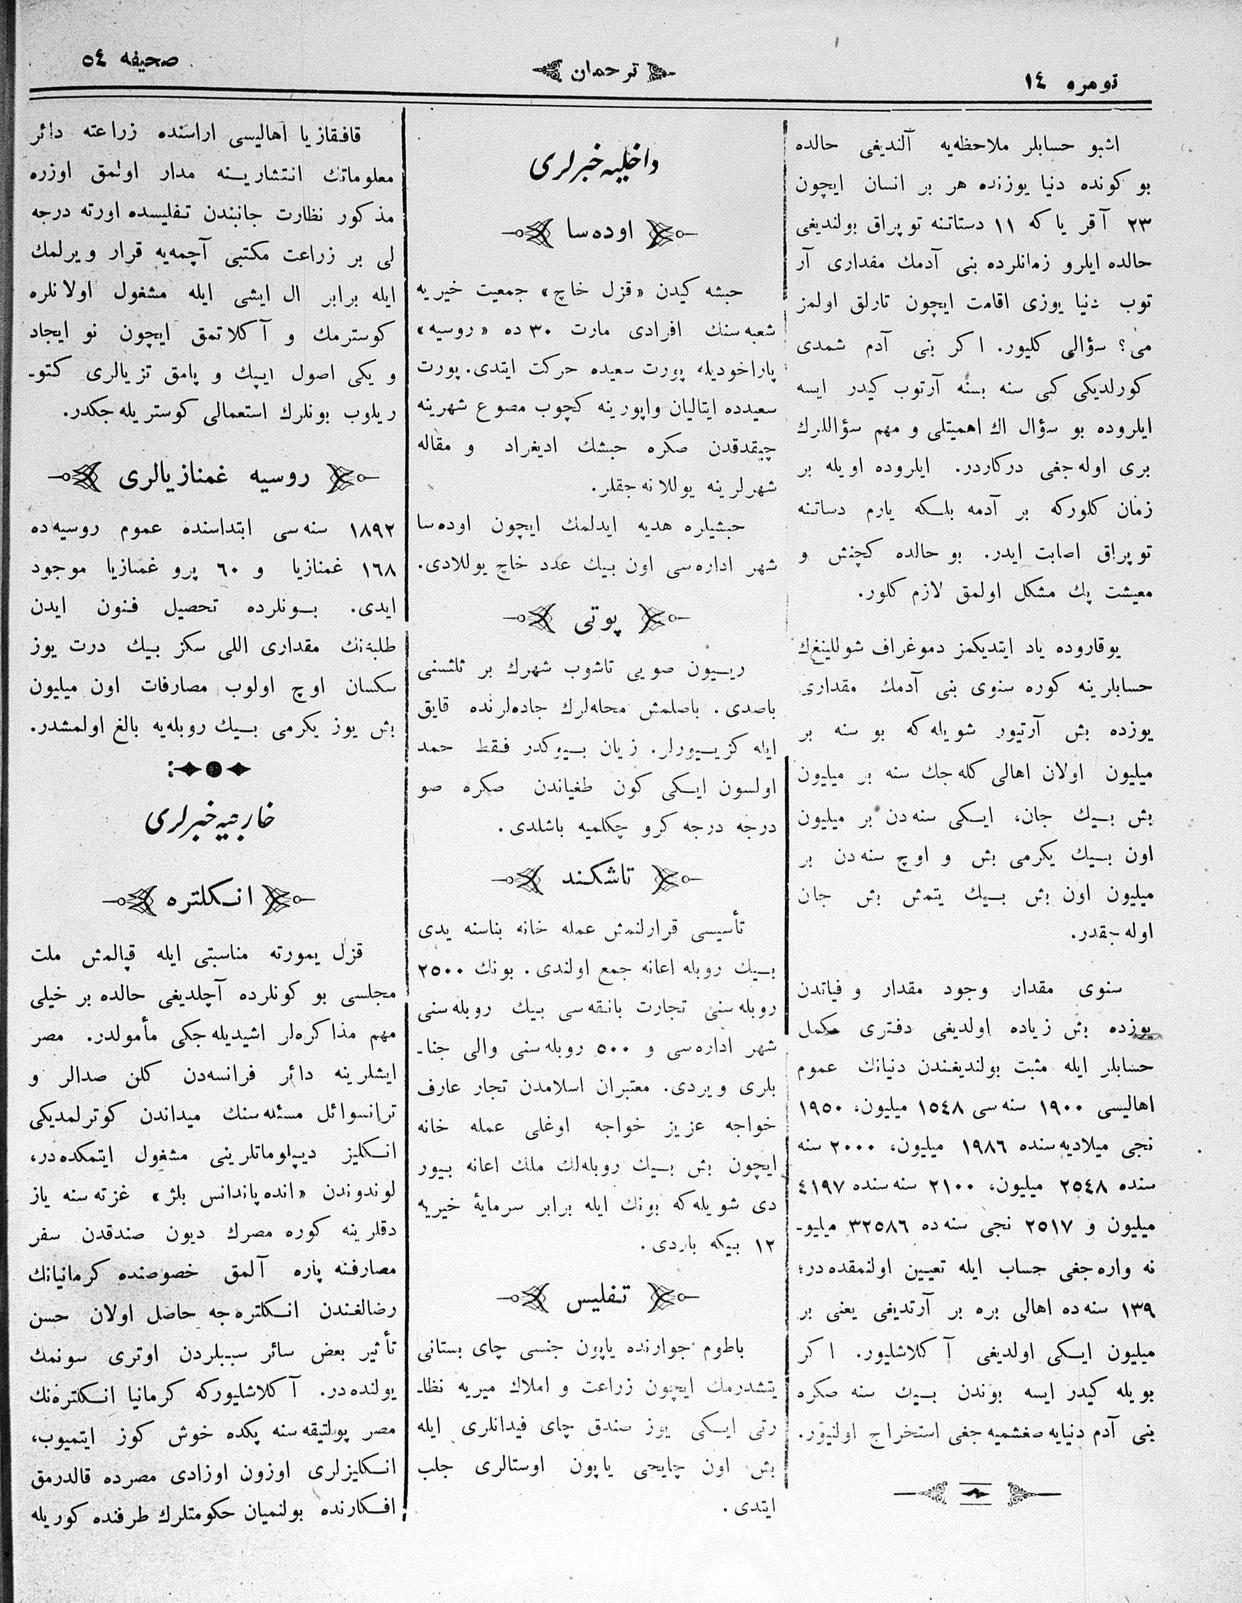 نومرو ١٤
ترجمان
صحیفه ٥٤
اشبو حسابلر ملاحظه‌یه آلندیغی حالده
بو كونده دنیا یوزنده هر بر انسان ایچون
٢٣ آقر یا كه ١١ دستاتنه توپراق بولندیغی
حالده ایلرو زمانلرده بنی آدمك مقداری آر
توب دنیا یوزی اقامت ایچون تارلق اولمز
می؟ سؤالی كلیور. اكر بنی آدم شمدی
كورلدیكی كبی سنه بسنه آرتوب كیدر ایسه
ایلروده بو سؤال اك اهمیتلی و مهم سؤاللرك
بری اوله‌جغی دركاردر. ایلروده اویله بر
زمان كلوركه بر آدمه بلـكه یارم دساتنه
توپراق اصابت ایدر. بو حالده كچنش و
معیشت پك مشكل اولمق لازم كلور.
یوقاروده یاد ایتدیكمز دموغراف شوللینغ‌ك
حسابلرینه كوره سنوی بنی آدمك مقداری
یوزده بش آرتیور شویله‌كه بو سنه بر
میلیون اولان اهالی كله‌جك سنه بر میلیون
بش بـیك جان، ایـكی سنه‌دن بر میلیون
اون بـیك یكرمی بش و اوچ سنه‌دن بر
میلیون اون بش بـیك یتمش بش جان
اوله‌جقدر.
سنوی مقدار وجود مقدار وفیاتدن
یوزده بش زیاده اولدیغی دفتری مكمل
حسابلر ایله مثبت بولندیغندن دنیانك عموم
اهالیسی ١٩٠٠ سنه‌سی ١٥٤٨ میلیون، ١٩٥٠
نجی میلادیه سنده ١٩٨٦ میلیون، ٢٠٠٠ سنه
سنده ٢٥٤٨ میلیون، ٢١٠٠ سنه سنده ٤١٩٧
میلیون و ٢٥١٧ نجی سنه‌ده ٣٢٥٨٦ میلیو‍ـ
نه واره‌جغی حساب ایله تعیین اولنمقده‌در؛
١٣٩ سنه‌ده اهالی بره بر آرتدیغی یعنی بر
میلیون ایـكی اولدیغی آكلاشلیور. اكر
بویله كیدر ایسه بوندن بـیك سنه صكره
بنی آدم دنیایه صغشمیه‌جغی استخراج اولنیور.
داخلیه خبرلری
اوده‌سا
حبشه كیدن «قزل خاچ» جمعیت خیریه
شعبه‌سنك افرادی مارت ٣٠ ده «روسیه»
پاراخودیله پورت سعیده حركت ایتدی. پورت
سعیدده ایتالیان واپورینه كچوب مصوع شهرینه
چیقدقدن صكره حبشك ادیغراد و مقاله
شهرلرینه یوللانه‌جقلر.
حبشیلره هدیه ایدلمك ایچون اوده‌سا
شهر اداره‌سی اون بـیك عدد خاچ یوللادی.
پوتی
ریـیون صویی تاشوب شهرك بر ثلثنی
باصدی. باصلمش محله‌لرك جاده‌لرنده قایق
ایله كزیـیورلر. زیان بـیوكدر فـقط حمد
اولسون ایـكی كون طغیاندن صكره صو
درجه درجه كرو چكلمیه باشلدی.
تاشكـند
تأسیسی قرارلنمش عمله خانه بناسنه یدی
بـیك روبله اعانه جمع اولندی. بونك ٢٥٠٠
روبله‌سنی تجارت بانقه‌سی بیك روبله‌سنی
شهر اداره‌سی و ٥٠٠ روبله‌سنی والی جنا‍ـ
بلری ویردی. معتبران اسلامدن تجار عارف
خواجه عزیز خواجه اوغلی عمله خانه
ایچون بش بـیك روبله‌لك ملك اعانه بیور
دی شویله‌كه بونك ایله برابر سرمایهٔ خیریه
١٢ بیكه باردی.
تـفلیس
باطوم جوارنده یاپون جنسی چای بستانی
یتشدرمك ایچون زراعت و املاك میریه نظا‍ـ
رتی ایـكی یوز صندق چای فیدانلری ایله
بش اون چایجی یاپون اوستالری جلب
ایتدی.
قافـقازیا اهالیسی اراسنده زراعته دائر
معلوماتك انتشاریـنه مدار اولمق اوزره
مذكور نظارت جانبندن تفلیسده اورته درجه
لی بر زراعت مكتبی آچمه‌یه قرار ویرلمك
ایله برابر ال ایشی ایله مشغول اولانلره
كوسترمك و آكلاتمق ایچون نو ایجاد
و یكی اصول ایپك و پامق تزیالری كتو‍ـ
ریلوب بونلرك استعمالی كوستریله‌جكدر.
روسیه غمنازیالری
١٨٩٢ سنه‌سی ابتداسنده عموم روسیه‌ده
١٦٨ غمنازیا و ٦٠ پروغمنازیا موجود
ایدی. بـونلرده تحصیل فنون ایدن
طلبه‌نك مقداری اللی سكز بـیك درت یوز
سكسان اوچ اولوب مصارفات اون میلیون
بش یوز یكرمی بـیك روبله‌یه بالغ اولمشدر.
خارجیه خبرلری
انـكلتره
قزل یمورته مناسبتی ایله قپالمش ملت
مجلسی بو كونلرده آچلدیغی حالده بر خیلی
مهم مذاكره‌لر اشیدیله‌جكی مأمولدر. مصر
ایشلرینه دائر فرانسه‌دن كلن صدالر و
ترانسوائل مسئله‌سنك میداندن كوترلمدیكی
انـكلیز دیپلوماتلرینی مشغول ایتمكده‌در،
لوندوندن «انده‌پاندانس بلژ» غزته‌سنه یاز
دقلرینه كوره مصرك دیون صندقدن سفر
مصارفنه پاره آلمق خصوصنده كرمانیانك
رضالغندن انـكلتره‌جه حاصل اولان حسن
تأثیر بعض سائر سببلردن اوتری سونمك
یولنده‌در. آكلاشلیوركه كرمانیا انـكلتره‌نك
مصر پولتیقه‌سنه پكده خوش كوز ایتمیوب،
انـكلیزلری اوزون اوزادی مصرده قالدرمق
افـكارنده بولنمیان حكومتلرك طرفنده كوریله